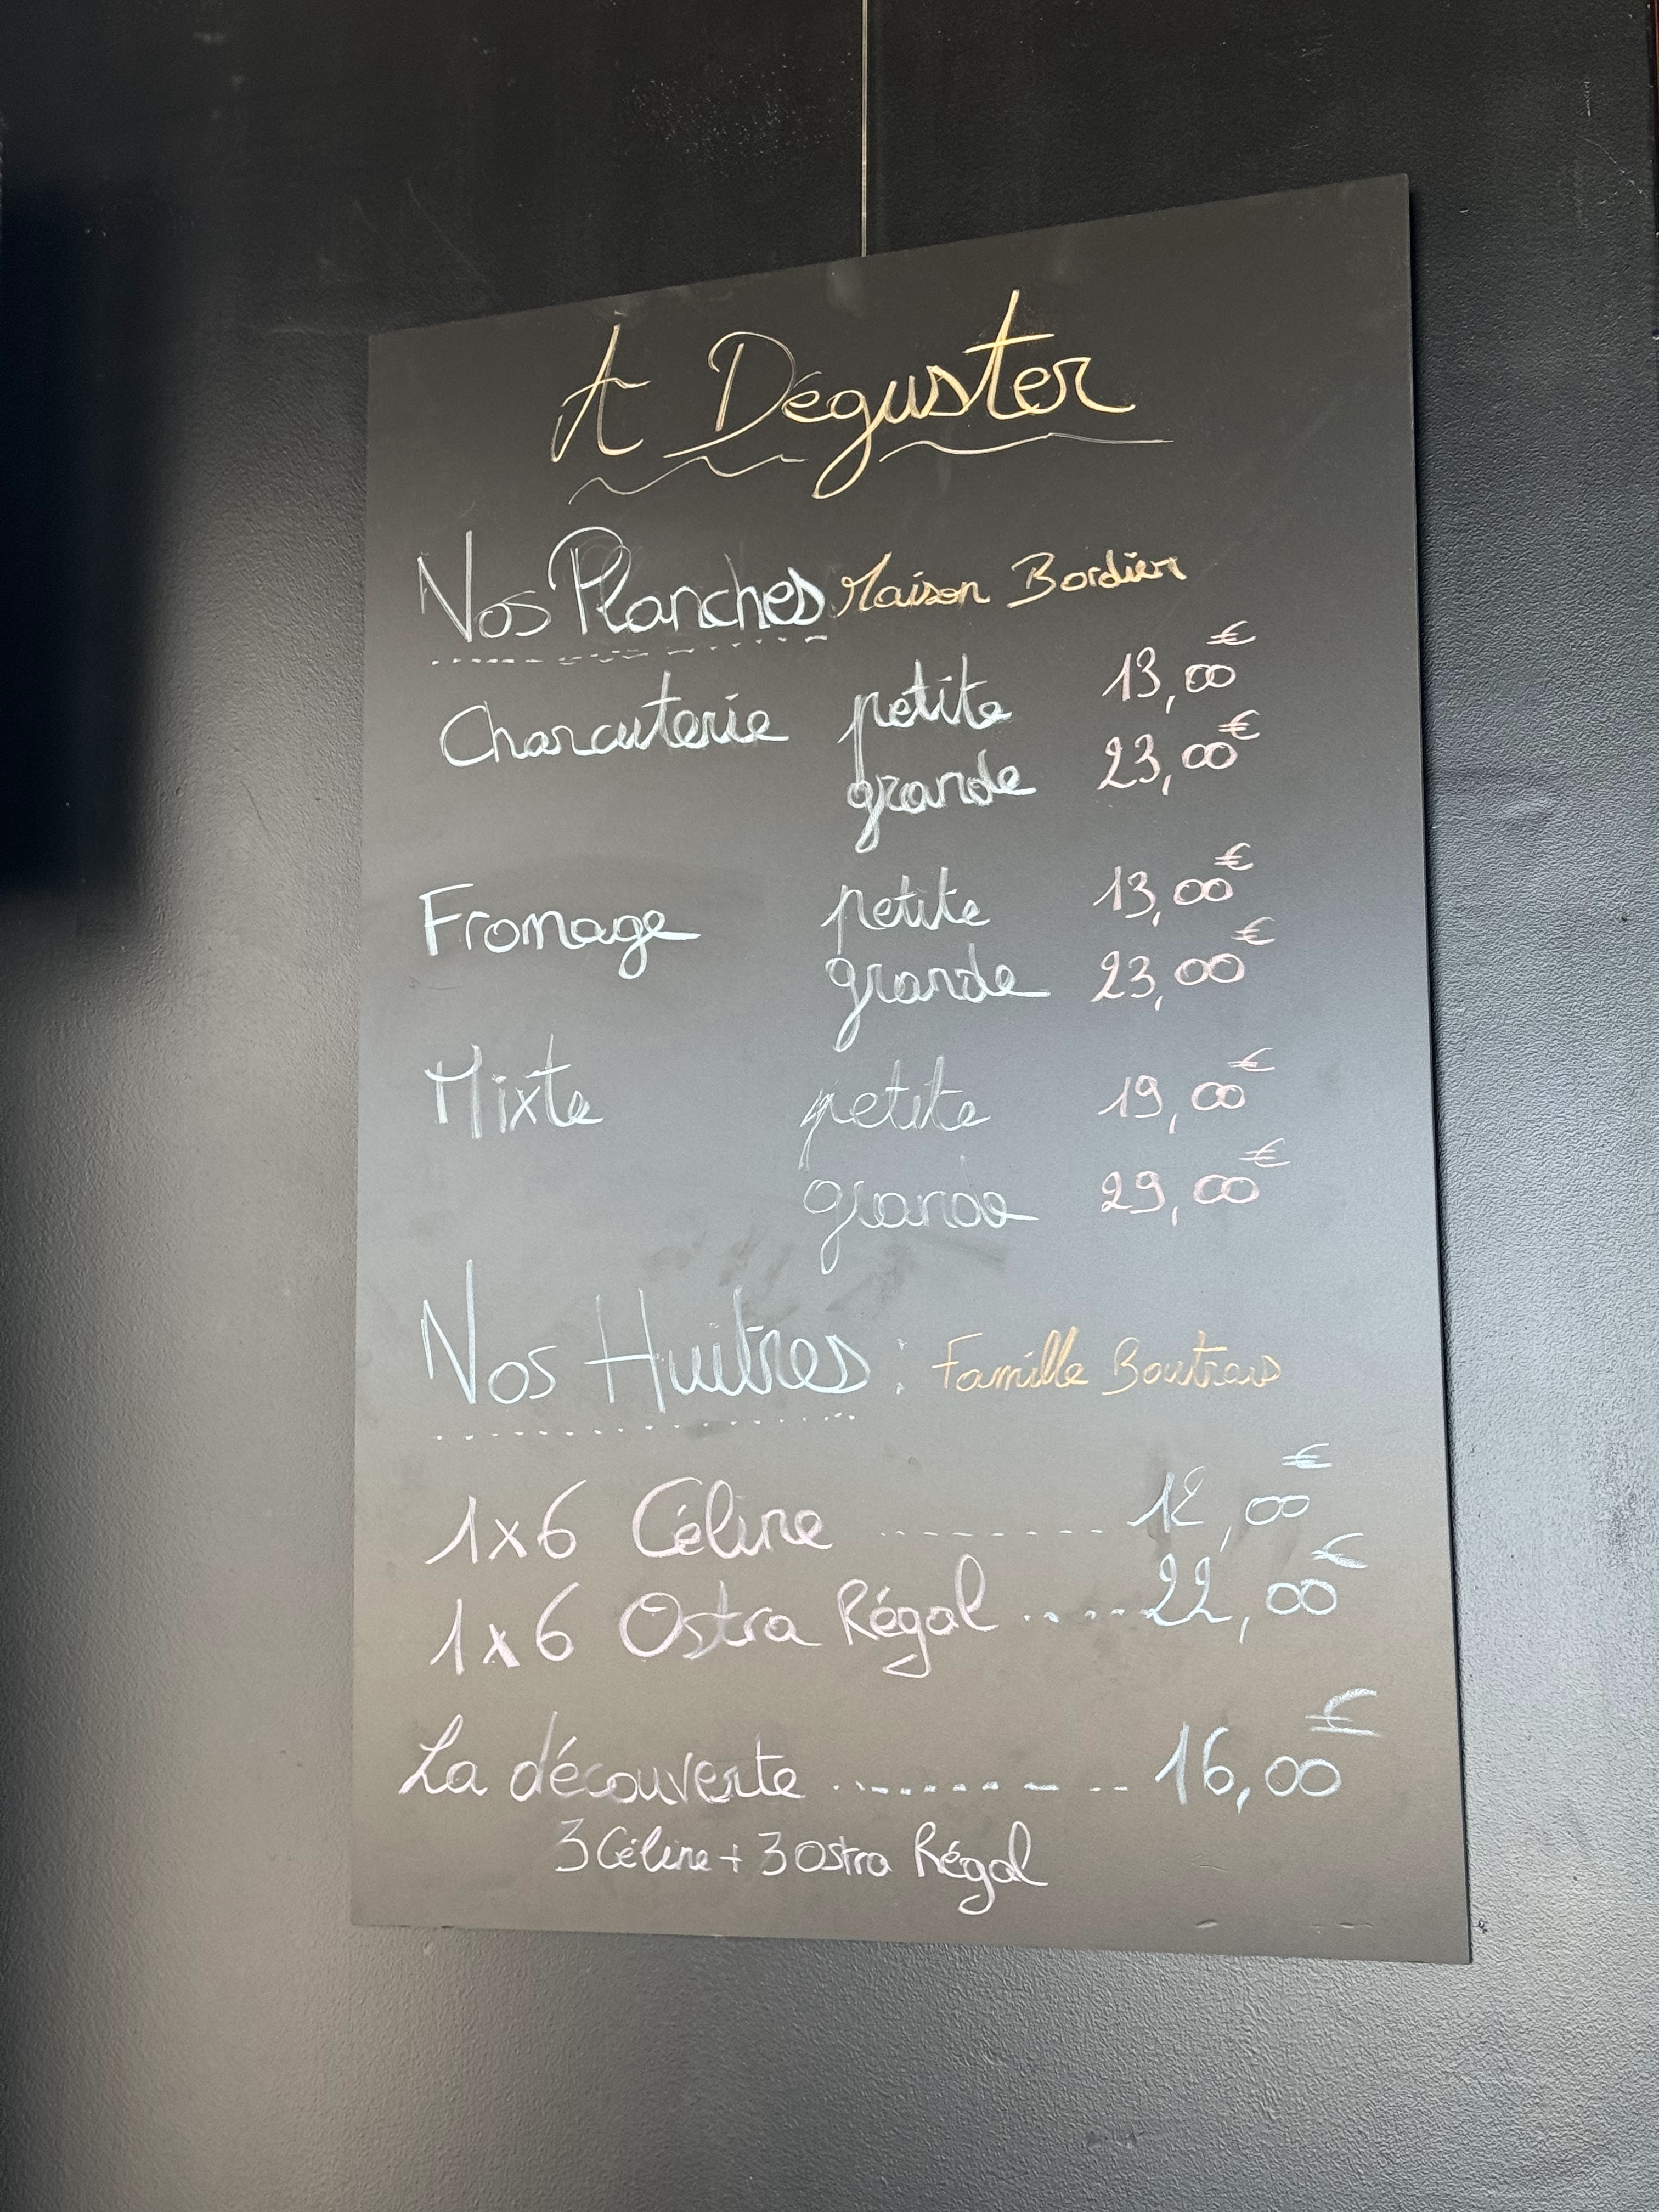 A Déguster
Nos Planches Maison Bordier
Charcuterie petite 13,00€
grande 23,00€
Fromage petite 13,00€
grande 23,00€
Mixte petite 19,00€
grande 29,00€
Nos Huitres : Famille Boutrais
1x6 Céline ......... 12,00€
1x6 Ostra Régal ..... 22,00€
La découverte ........... 16,00€
3 Céline + 3 Ostra Régal